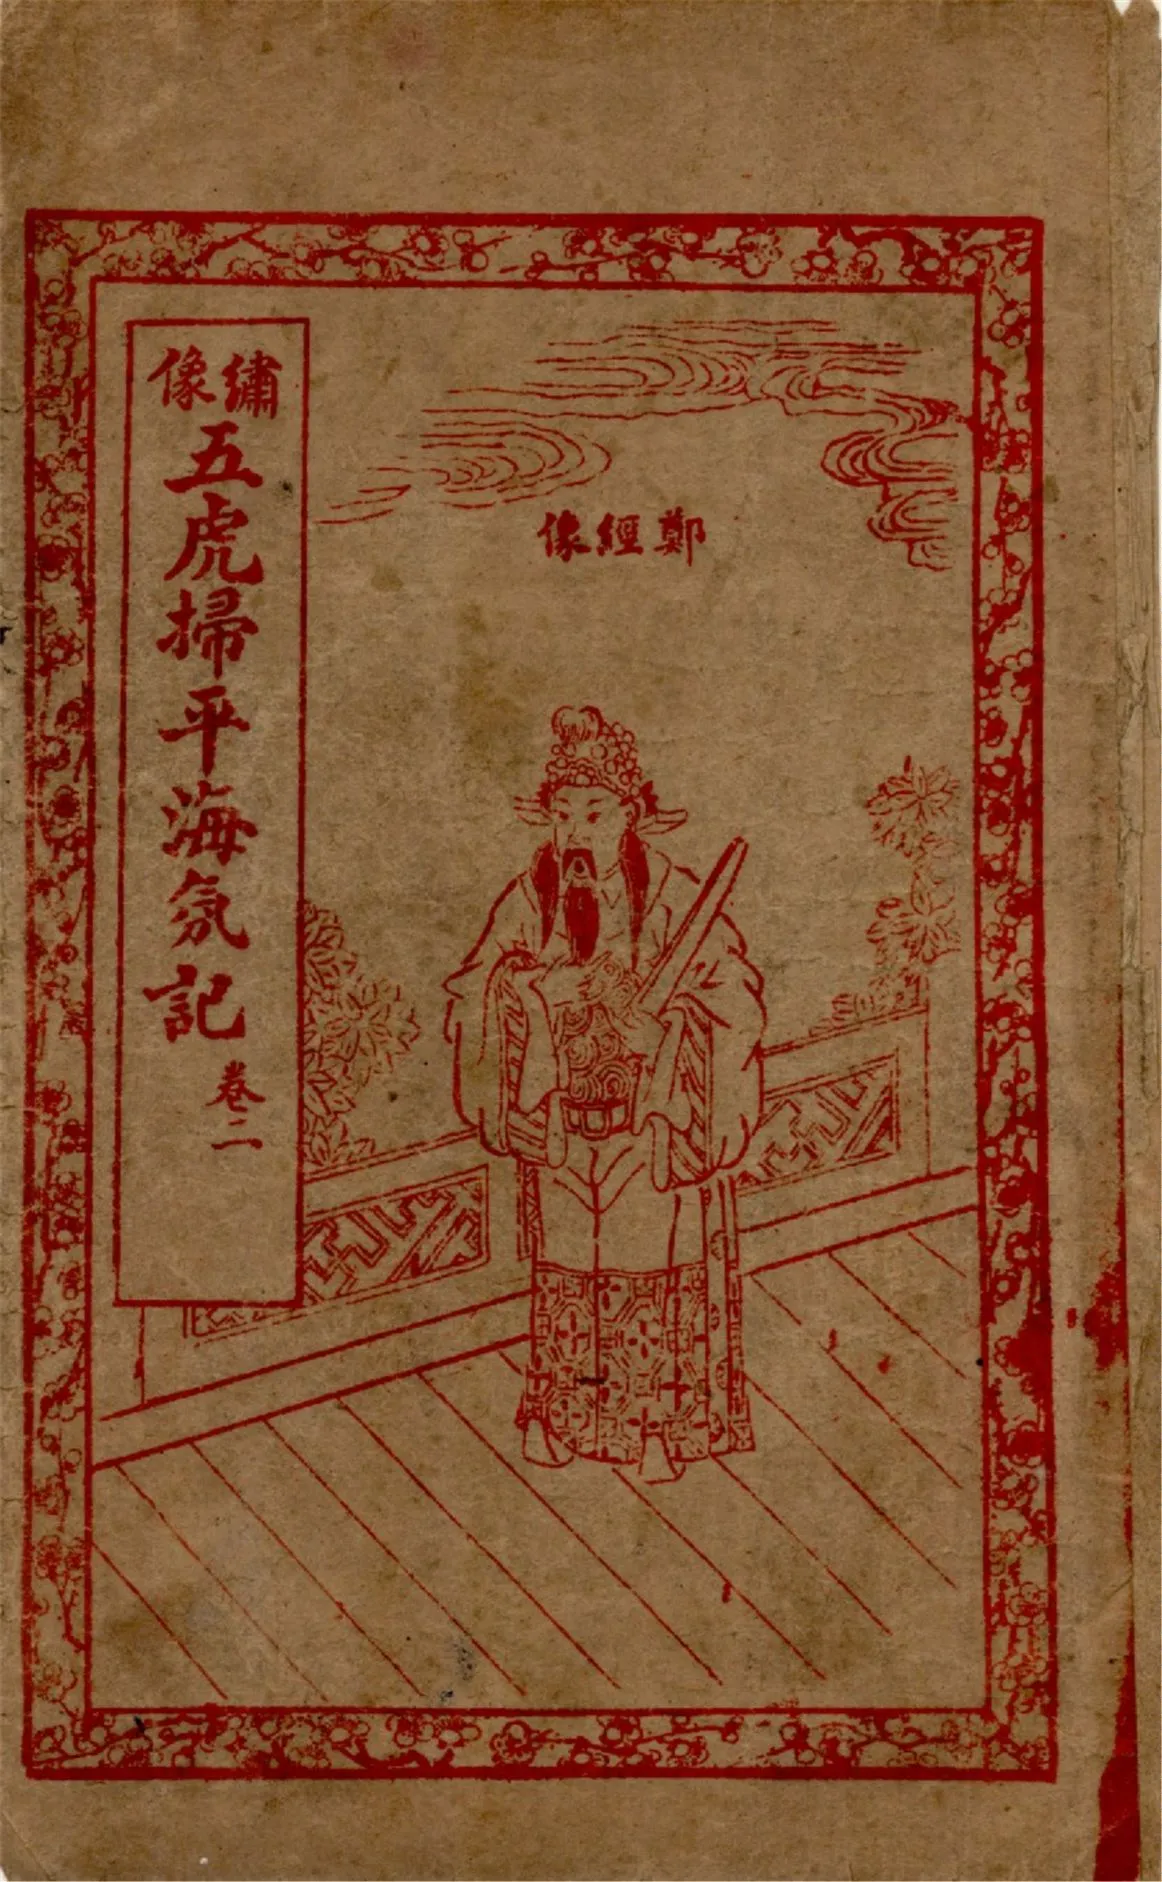 鄭經像
繡像
五虎掃平海氛記
卷二